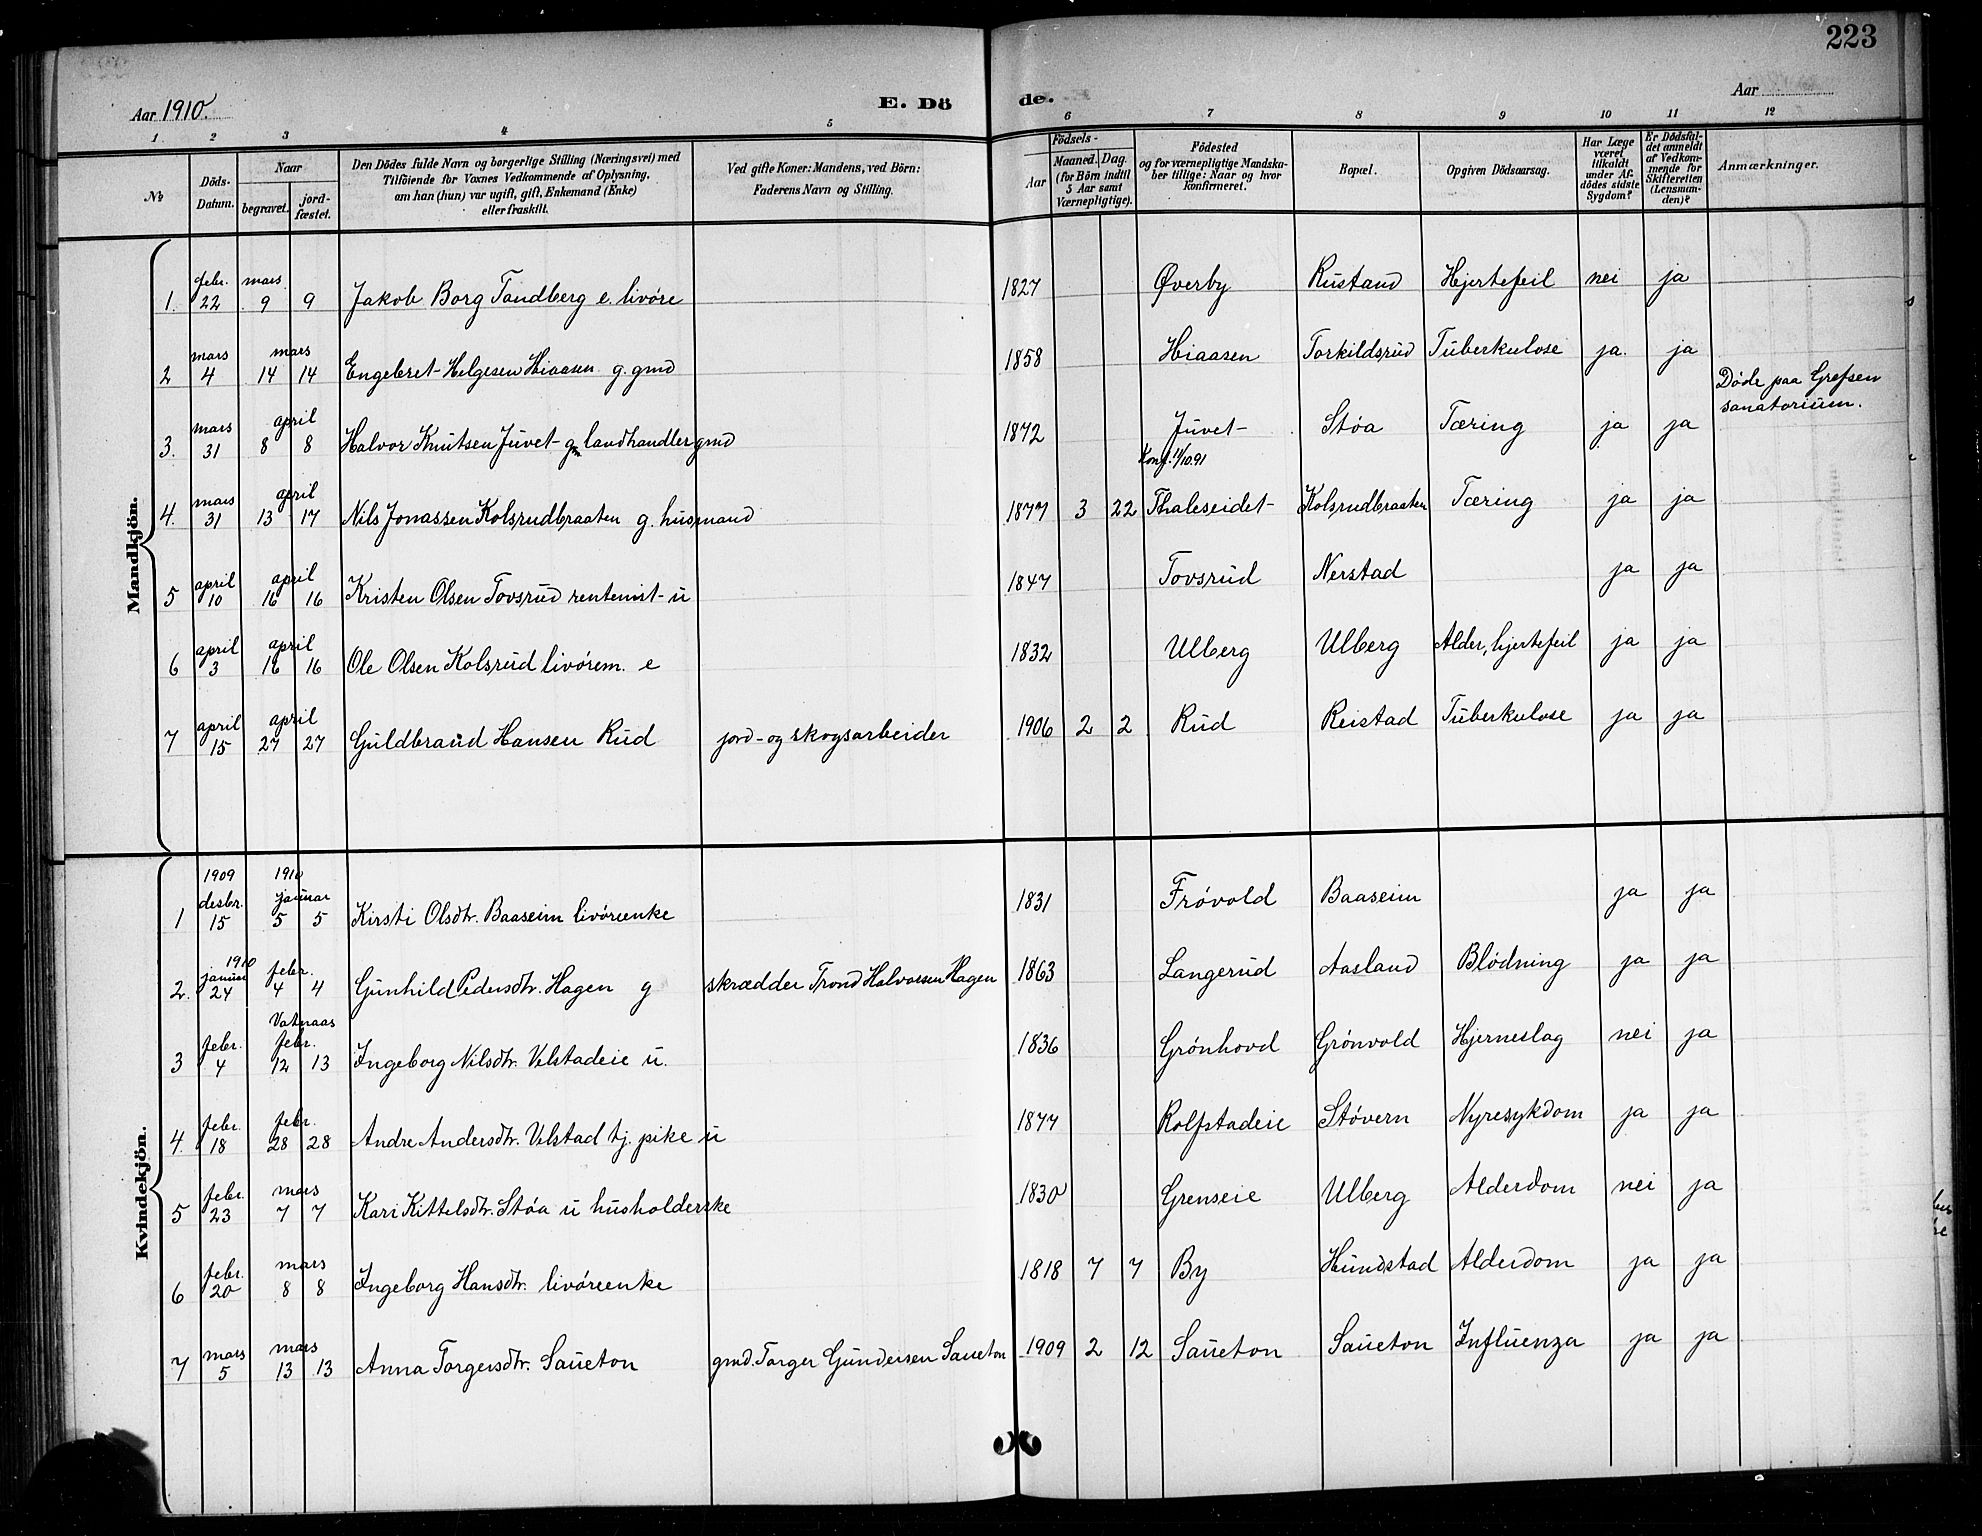 223
Aar 1910.
E. Dö
de.
Aar
1 2 3 4 5 6 7 8 9 10 11 12
No
Döds-Datum.
Naar
begravet.
jord-fæstet.
Den Dödes fulde Navn og borgerlige Stilling (Næringsvei) med
Tilföiende for Voxnes Vedkommende af Oplysning,
om han (hun) var ugift, gift, Enkemand (Enke)
eller fraskilt.
Ved gifte Koner: Mandens, ved Börn:
Faderens Navn og Stilling.
Födsels-
Aar
Maaned. Dag.
(for Börn indtil
5 Aar samt
Værnepligtige).
Födested
og for værnepligtige Mandska-
ber tillige: Naar og hvor
konfirmeret.
Bopæl.
Opgiven Dödsaarsag.
Har Læge
været
tilkaldt
under Af-
dödes sidste
Sygdom?
Er Dödsfal-
det anmeldt
af Vedkom-
mende for
Skifteretten
(Lensman-
den)?
Anmærkninger.
Mandkjön.
1. febr. 22 mars 9 9 Jakob Borg Tandberg e. livöre 1827 Øverby Rustand Hjertefeil nei ja
2 mars 4 mars 14 14 Engebret Helgesen Hiaasen g. gmd 1858 Hiaasen Torkildsrud Tuberkulose ja. ja
3. mars 31 april 8 8 Halvor Knutsen Juvet g. landhandler gmd 1872 Juvet Støa Tæring ja ja Døde paa Grefsen
sanatorium.
4. mars 31 april 13 17 Nils Jonassen Kolsrudbraaten g. husmand 1877 3 22 Konf. 11/10.91 Thaleseidet Kolsrudbraaten Tæring ja ja
5 april 10 april 16 16 Kristen Olsen Tovsrud rentenist u 1847 Tovsrud Nerstad ja ja
6 april 3 april 16 16 Ole Olsen Kolsrud livørem. e 1832 Ulberg Ulberg Alder, hjertefeil ja ja
7 april 15 april 27 27 Guldbrand Hansen Rud jord- og skogsarbeider 1906 2 2 Rud Reistad Tuberkulose ja ja
Kvindekjön.
1 1909 desbr. 15 1910 januar 5 5 Kirsti Olsdtr. Baaseim livöreenke 1831 Frøvold Baaseim ja ja
2. 1910 januar 24 febr. 4 4 Gunhild Pedersdtr. Hagen g skrædder Trond Halvorsen Hagen 1863 Langerud Aasland Blødning ja ja
3 febr. 4 Vatnaas febr. 12 13 Ingeborg Nilsdtr. Velstadeie u. 1836 Grønhovd Grønvold Hjerneslag nei ja
4 febr. 18 febr. 28 28 Andre Andersdtr. Velstad tj. pike u 1877 Rolfstadeie Støvern Nyresykdom ja ja
5 febr. 23 mars 7 7 Kari Kittelsdtr. Støa u husholderske 1830 Grenseie Ulberg Alderdom nei ja
6 febr. 20 mars 8 8 Ingeborg Hansdtr. livöreenke 1818 7 7 By Hundstad Alderdom ja ja
7 mars 5 mars 13 13 Anna Torgersdtr. Saueton gmd. Torger Gundersen Saueton 1909 2 12 Saueton Saueton Influenza ja ja